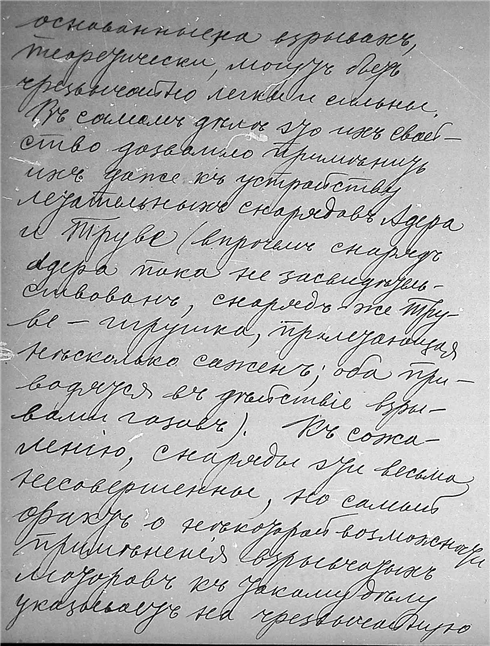 основанные на взрывахъ,
теоретически, могутъ быть
чрезвычайно легки и сильны.
Въ самомъ дѣлѣ это ихъ свой-
ство дозволило примѣнить
ихъ даже къ устройству
летательныхъ снарядовъ Адера
и Труве (впрочемъ снарядъ
Адера пока не засвидѣтель-
ствованъ, снарядъ же Тру-
ве – игрушка, пролетающая
нѣсколько саженъ; оба при-
водятся въ дѣйствіе взры-
вами газовъ). Къ сожа-
лѣнію, снаряды эти весьма
несовершенны, но самый
фактъ о нѣкоторой возможности
примѣненія взрывчатыхъ
моторовъ къ такому дѣлу
указываетъ на чрезвычайную